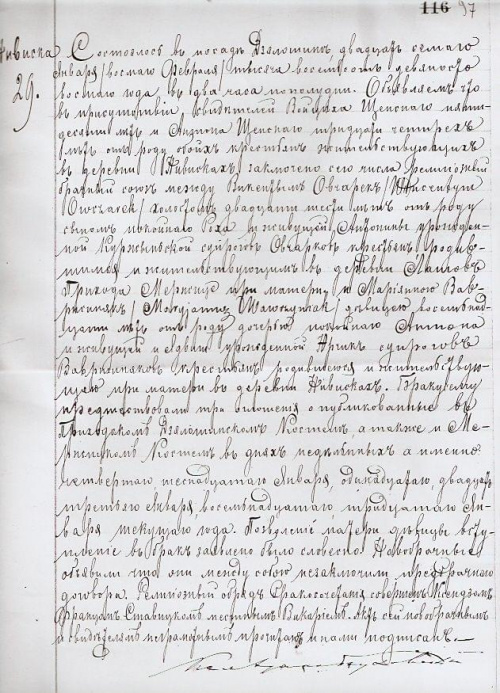 116 97
Нивиска
29.
Состоялось въ посадѣ Дзялошинѣ двадцать седьмаго
Января / восьмаго Февраля / тысяча восемьсотъ девяносто
года, въ два часа по полудни. Объявляемъ что
въ присутствіи свидѣтелей Щенснаго пяти
десяти лѣтъ и Щенснаго тридцати четырехъ
лѣтъ отъ роду обоихъ крестьянъ жительствующихъ
въ деревни Нивискахъ, заключено сего числа религіозный
брачный союзъ между Викентіемъ Овчарекъ / Wincentym
Owczarek / холостымъ двадцати шести лѣтъ отъ роду
сыномъ покойнаго Роха и живущей Антонины урожден-
ной супруговъ Овчарковъ крестьянъ родив-
шимся и жительствующимъ въ деревни
Прихода при матери, и Маріянною Вав-
рисинякъ / Wawrzyniak / дѣвицею восемьнад-
цати лѣтъ отъ роду дочерью покойнаго Антона
и живущей урожденной супруговъ
крестьянъ родившеюся и жительствую-
щею при матери въ деревни Нивискахъ. Браку сему
предшествовали три оглашенія опубликованные въ
Приходскомъ Дзялошинскомъ Костелѣ, а также и
Костелѣ въ дняхъ недѣльныхъ а именно
четвертаго шестнадцатаго Января, одинадцатаго, двадцать
третьяго Января восемьнадцатаго, тридцатаго Ян-
варя текущаго года. Позволеніе матери дѣвицы всту-
пленіе въ бракъ заявлено было словесно. Новобрачные
объявили что они между собою незаключили предбрачнаго
договора. Религіозный обрядъ бракосочетанія совершенъ Ксендзомъ
мѣстнымъ Викаріемъ. Актъ сей новобрачнымъ
и свидѣтелямъ неграмотнымъ прочитанъ и нами подписанъ.